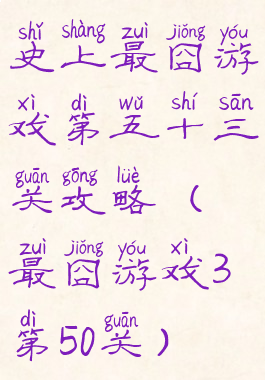 shǐ shàng zuì jiǒng yóu
史上最囧游
xì dì wǔ shí sān
戏第五十三
guān gōng lüè
关攻略（
zuì jiǒng yóu xì
最囧游戏3
dì guān
第50关）